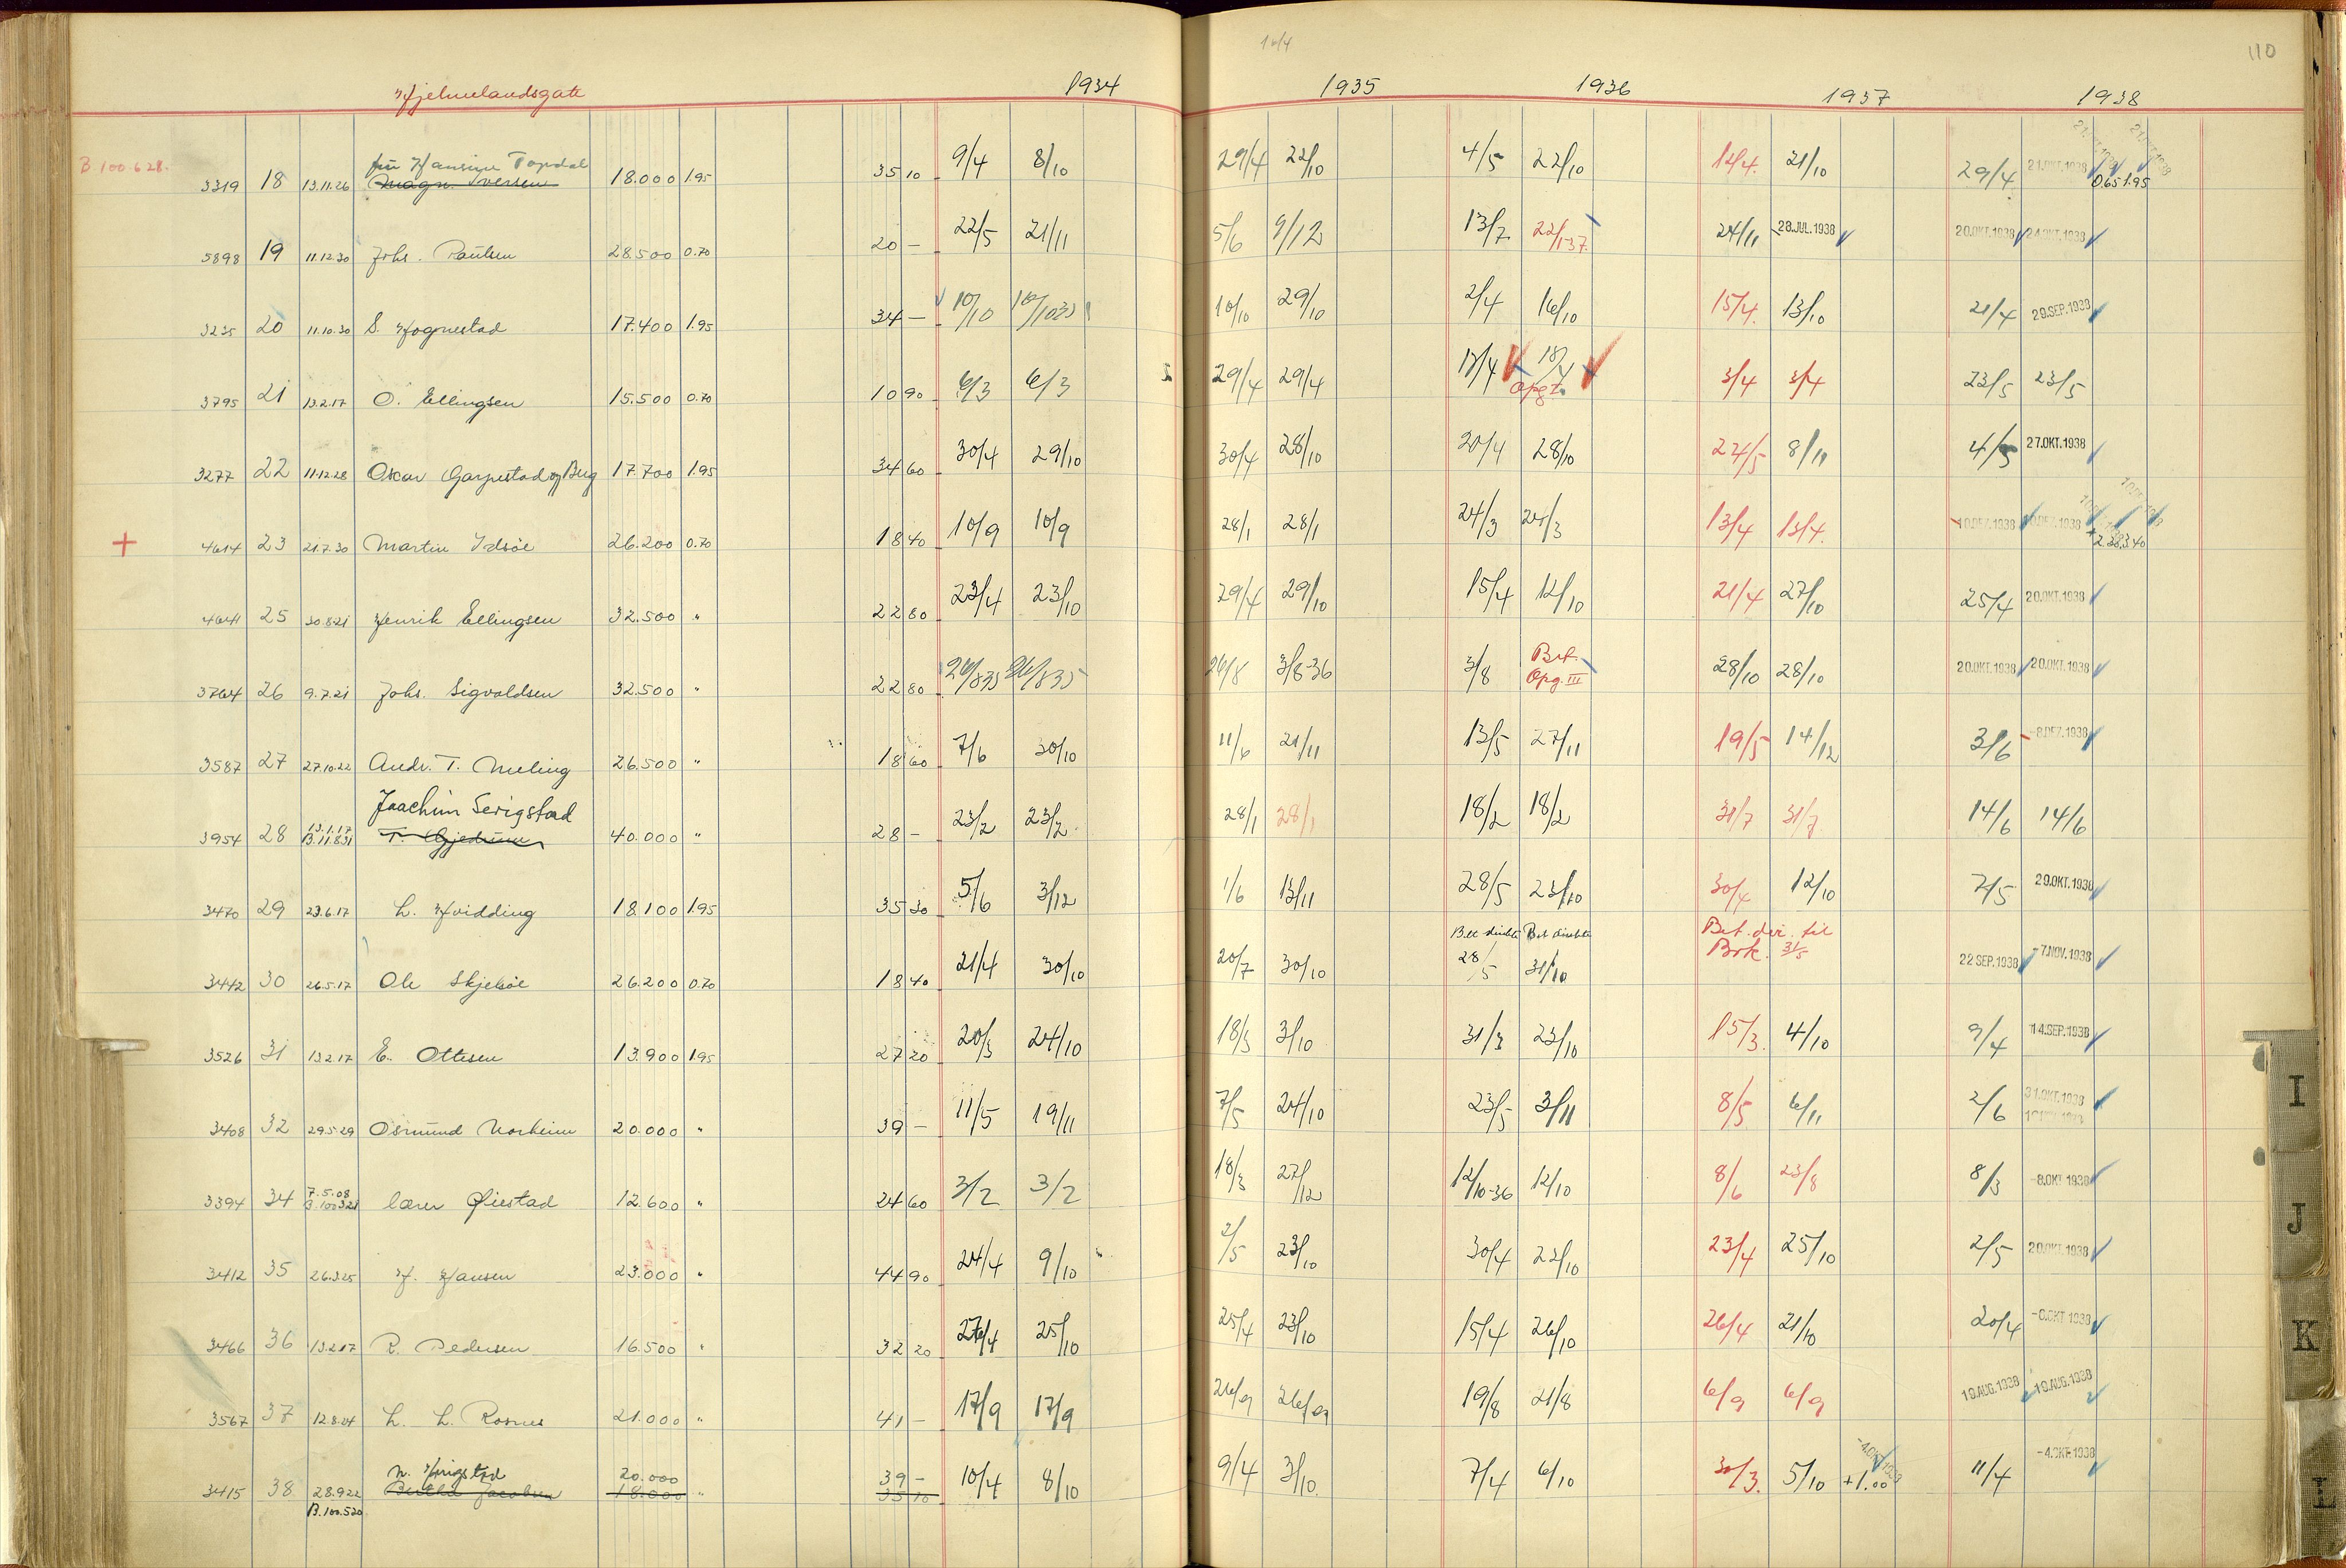 10/4 110
Hjelmelandsgate 1934 1935 1936 1937 1938
B.100.628. frü Hansine Topdal
3319 18 13.11.26 Magn. Iversen 18.000 1.95 35 10 9/4 8/10 29/4 22/10 4/5 22/10 12/4. 21/10 29/4 21.OKT.1938 0.65 1.95
5898 19 11.12.30 Johs. Paulsen 28.500 0.70 20 – 22/5 21/11 5/6 9/12 13/7 22/1-37. 24/11 28.JUL.1938 20.OKT.1938 24.OKT.1938
3235 20 11.10.30 S. Hognestad 17.400 1.95 34 – 10/10 10/1035 10/10 29/10 2/4 16/10 15/4. 13/10 21/4 29.SEP.1938
3795 21 13.2.17 O. Ellingsen 15.500 0.70 10 90 6/3 6/3 29/4 29/4 17/4 18/4 Opgt. 3/4 3/4 23/5 23/5
3277 22 11.12.28 Oskar Garpestad og Berg 17.700 1.95 34 60 30/4 29/10 30/4 28/10 20/4 28/10 22/5 8/11 4/5 27.OKT.1938
+ 4614 23 21.7.30 Martin Idsöe 26.200 0.70 18 40 10/9 10/9 28/1 28/1 24/3 24/3 13/4 13/4. 10.DEZ.1938 10.DEZ.1938 2.38 3.40
4641 25 30.8.21 Henrik Ellingsen 32.500 " 22 80 23/4 23/10 29/4 29/10 15/4 12/10 21/4 27/10 25/4 20.OKT.1938
3764 26 9.7.21 Johs. Sigvaldsen 32.500 " 22 80 26/835 26/835 26/8 3/8-36 3/8 Bet. Opg. III 28/10 28/10 20.OKT.1938 20.OKT.1938
3587 27 27.10.22 Andr. T. Meling 26.500 " 18 60 7/6 30/10 11/6 21/11 13/5 27/11 19/5 14/12 3/6 -8.DEZ.1938
Joachim Serigstad
3954 28 13.1.17 B.11.831 T. Gjedrem 40.000 " 28 – 23/2 23/2. 28/1 28/1 18/2 18/2 31/7 31/7 14/6 14/6
3470 29 23.6.17 L. Hvidding 18.100 1.95 35 30 5/6 3/12 1/6 13/11 28/5 23/10 30/4 12/10 7/5 29.OKT.1938
Bet direkte Bet direkte Bet. dir. til
3442 30 26.5.17 Ole Skjeböe 26.200 0.70 18 40 21/4 30/10 20/7 30/10 28/5 31/10 Brk. 31/5 22 SEP.1938 -7.NOV.1938
3526 31 13.2.17 E. Ottesen 13.900 1.95 27 20 20/3 24/10 18/3 3/10 31/3 23/10 15/3. 4/10 9/4 14.SEP.1938
3408 32 29.5.29 Osmund Norheim 20.000 " 39 – 11/5 19/11 7/5 24/10 23/5 3/11 8/5 6/11 2/6 31.OKT.1938
3394 34 7.5.08 B.100321 lærer Øiestad 12.600 " 24 60 3/2 3/2 18/3 27/12 12/10-36 12/10 8/6 23/8 8/3 -8.OKT 1938
3412 35 26.3.25 H. Hansen 23.000 " 44 90 24/4 9/10 2/5 23/10 30/4 22/10 23/4 25/10 2/5 20.OKT.1938
3466 36 13.2.17 R. Pedersen 16.500 " 32 20 27/4 25/10 25/4 23/10 15/4 26/10 26/4 21/10 20/4 OKT 1938
3567 37 12.8.24 L. L. Rosnes 21.000 " 41 – 17/9 17/9 26/9 26/9 19/8 21/8 6/9 6/9 19.AUG.1938 19.AUG.1938
N. Hrigstad 20.000 39 –
3415 38 28.9.22 Bertha Jacobsen 18.000 " 35 10 10/4 8/10 9/4 3/10. 7/4 6/10 30/3. 5/10 +1.00 11/4 -4.OKT.1938
B.100.520
I
J
K
L